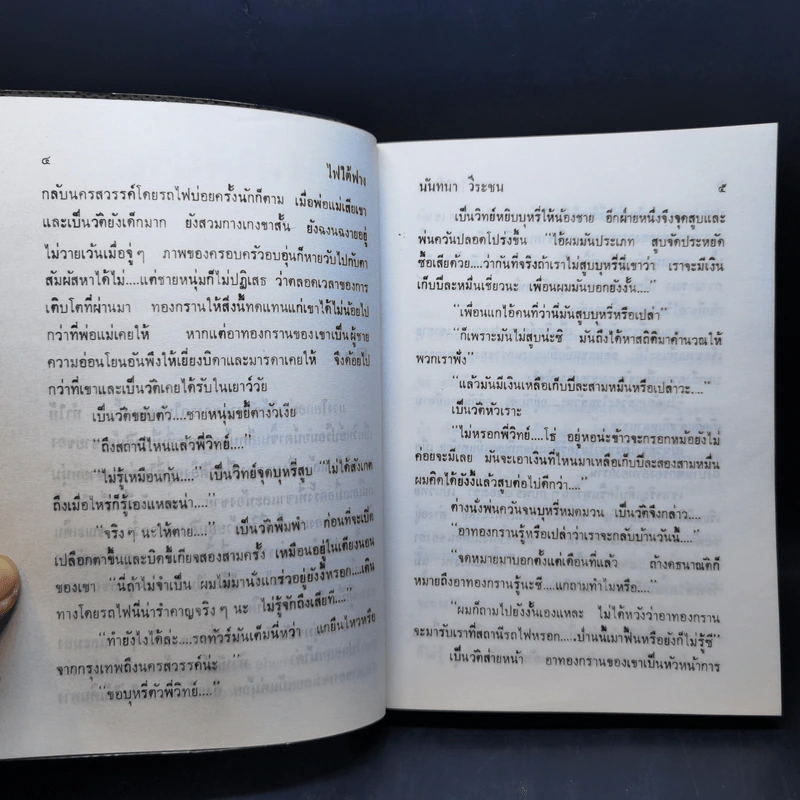 ๔
ไฟใต้ฟาง
กลับนครสวรรค์โดยรถไฟบ่อยครั้งนักก็ตาม เมื่อพ่อแม่เสียเขา
และเป็นวัติยังเด็กมาก ยังสวมกางเกงขาสั้น ยังฉงนฉงายอยู่
ไม่วายเว้นเมื่อจู่ๆ ภาพของครอบครัวอบอุ่นก็หายวับไปกับตา
สัมผัสหาได้ไม่....แต่ชายหนุ่มก็ไม่ปฏิเสธ ว่าตลอดเวลาของการ
เติบโตที่ผ่านมา ทองกรานให้สิ่งนี้ทดแทนแก่เขาได้ไม่น้อยไป
กว่าที่พ่อแม่เคยให้ หากแต่อาทองกรานของเขาเป็นผู้ชาย
ความอ่อนโยนอันพึงให้เยี่ยงบิดาและมารดาเคยให้ จึงด้อยไป
กว่าที่เขาและเป็นวัติเคยได้รับในเยาว์วัย
เป็นวัติขยับตัว....ชายหนุ่มขยี้ตางัวเงีย
“ถึงสถานีไหนแล้วพี่วิทย์....”
“ไม่รู้เหมือนกัน....” เป็นวิทย์จุดบุหรี่สูบ “ไม่ได้สังเกต
ถึงเมื่อไหร่ก็รู้เองแหละน่า....”
“จริงๆ นะให้ตาย....” เป็นวัติพึมพำ ก่อนที่จะเปิด
เปลือกตาขึ้นและบิดขี้เกียจสองสามครั้ง เหมือนอยู่ในเตียงนอน
ของเขา “นี่ถ้าไม่จำเป็น ผมไม่มานั่งแกร่วอยู่ยังงี้หรอก....เดิน
ทางโดยรถไฟนี่น่ารำคาญจริงๆ นะ ไม่รู้จักถึงเสียที....”
“ทำยังไงได้ล่ะ....รถทัวร์มันเต็มนี่หว่า แกยืนไหวหรือ
จากกรุงเทพถึงนครสวรรค์น่ะ”
“ขอบุหรี่ตัวพี่วิทย์....”
นันทนา วีระชน
๕
เป็นวิทย์หยิบบุหรี่ให้น้องชาย อีกฝ่ายหนึ่งจึงจุดสูบและ
พ่นควันปลอดโปร่งขึ้น “ไอ้ผมมันประเภท สูบจัดประหยัด
ซื้อเสียด้วย....ว่ากันที่จริงถ้าเราไม่สูบบุหรี่นี่เขาว่า เราจะมีเงิน
เก็บปีละหมื่นเชียวนะ เพื่อนผมมันบอกยังงั้น....”
“เพื่อนแกไอ้คนที่ว่านี่มันสูบบุหรี่หรือเปล่า”
“ก็เพราะมันไม่สูบน่ะซิ มันถึงได้หาสถิติมาคำนวณให้
พวกเราฟัง”
“แล้วมันมีเงินเหลือเก็บปีละสามหมื่นหรือเปล่าวะ....”
เป็นวัติหัวเราะ
“ไม่หรอกพี่วิทย์....โธ่ อยู่หอน่ะข้าวจะกรอกหม้อยังไม่
ค่อยจะมีเลย มันจะเอาเงินที่ไหนมาเหลือเก็บปีละสองสามหมื่น
ผมคิดได้ยังงี้แล้วสูบต่อไปดีกว่า....”
ต่างนั่งพ่นควันจนบุหรี่หมดมวน เป็นวัติจึงกล่าว....
“อาทองกรานรู้หรือเปล่าว่าเราจะกลับบ้านวันนี้....”
“จดหมายมาบอกตั้งแต่เดือนที่แล้ว ถ้างัดธนาณัติก็
หมายถึงอาทองกรานรู้นะซี....แกถามทำไมหรือ....”
“ผมก็ถามไปยังงั้นเองแหละ ไม่ได้หวังว่าอาทองกราน
จะมารับเราที่สถานีรถไฟหรอก....ป่านนี้เมาฟื้นหรือยังก็ไม่รู้ซี”
เป็นวัติส่ายหน้า อาทองกรานของเขาเป็นหัวหน้าการ